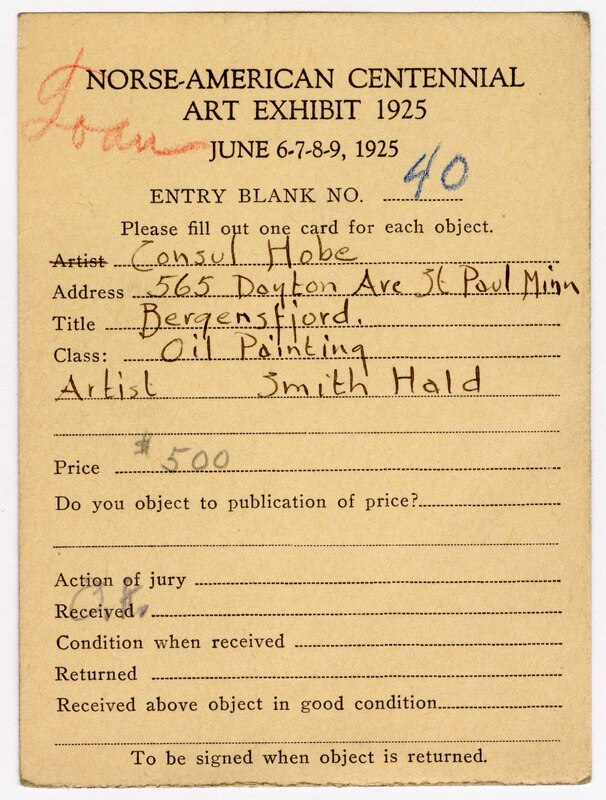 NORSE-AMERICAN CENTENNIAL
ART EXHIBIT 1925
Loan
JUNE 6-7-8-9, 1925
ENTRY BLANK NO. 40
Please fill out one card for each object.
Artist Consul Hobe
Address 565 Dayton Ave St Paul Minn
Title Bergensfjord.
Class: Oil Painting
Artist Smith Hald
Price $500
Do you object to publication of price?
Action of jury
O.K.
Received
Condition when received
Returned
Received above object in good condition
To be signed when object is returned.